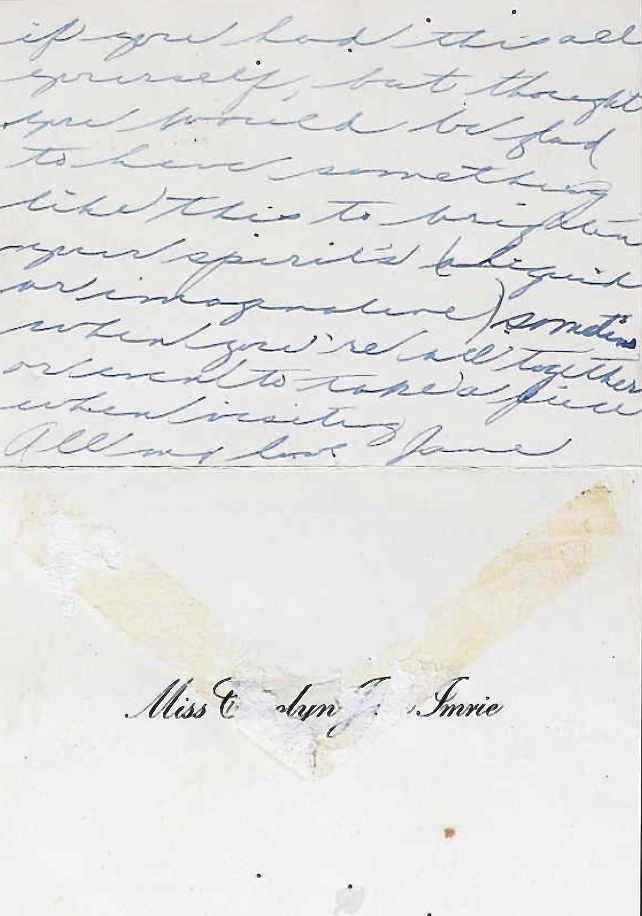 if you had this all
yourself, but thought
you would be glad
to have something
like this to brighten
your spirits (liquid
or imaginative) sometime
when you're all together
or even to take a piece
when visiting
All my love, Jane
Miss lyn J. Imrie